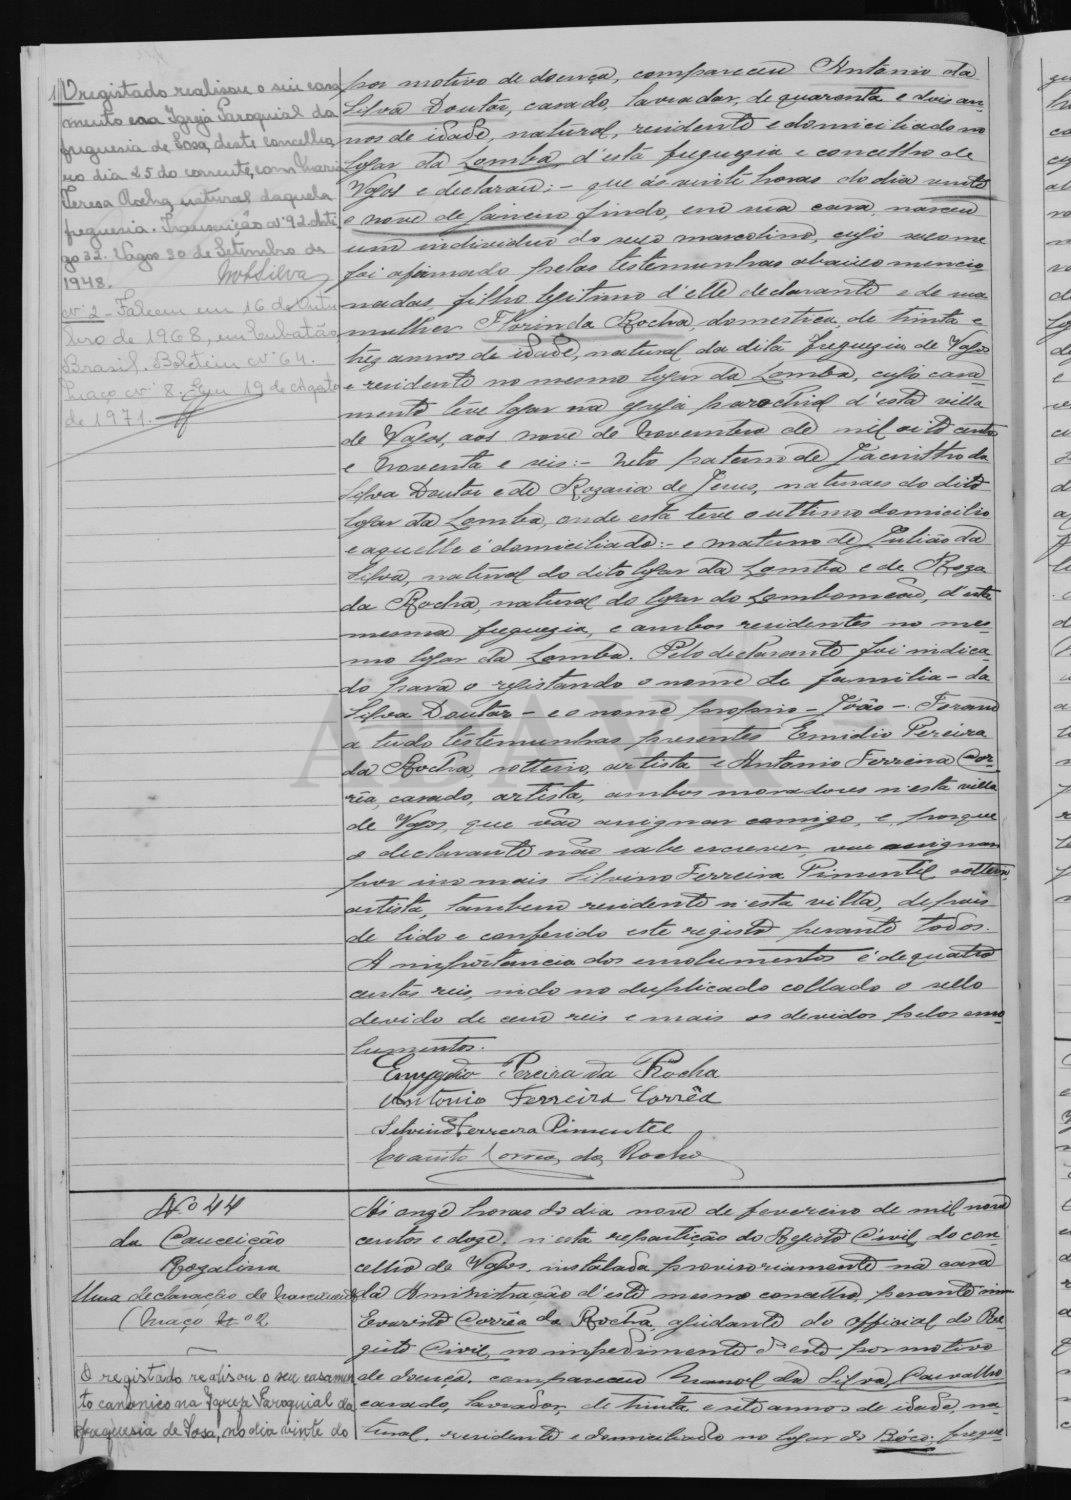 1 O registado realisou o seu casa
mento na Igreja Paroquial da
freguesia de Sosa, deste concelho,
no dia 25 do corrente, com Maria
Teresa Rocha, natural daquela
freguesia. Transcrição nº 92. Arti
go 32. Vagos 30 de Setembro de
1948.
nº 2 - Faleceu em 16 de Outu
bro de 1968, em Cubatão,
Brasil. Boletim nº 64.
Maço nº 8. Em 19 de Agosto
de 1971.
por motivo de doença, compareceu Antonio da
Silva Doutor, casado, lavrador, de quarenta e dois an-
nos de idade, natural, residente e domiciliado no
logar da Lomba, d'esta freguezia e concelho de
Vagos e declarou: - que ás vinte horas do dia vinte
e nove de Janeiro findo, em sua casa, nasceu
um individuo do sexo masculino, cujo sexo me
foi afirmado pelas testemunhas abaixo mencio
nadas, filho legitimo d'elle declarante e de sua
mulher Florinda Rocha, domestica, de trinta e
trez annos de idade, natural da dita freguezia de Vagos
e residente no mesmo logar da Lomba, cujo casa-
mento teve logar na egreja parochial d'esta villa
de Vagos, aos nove de Novembro de mil oito centos
e noventa e seis: - Neto paterno de Jacintho da
Silva Doutor e de Rozaria de Jesus, naturaes do dito
logar da Lomba, onde esta teve o ultimo domicilio
e aquelle é domiciliado: - e materno de Julião da
Silva, natural do dito logar da Lomba e de Roza
da Rocha, natural do logar do Lombomeão, d'esta
mesma freguezia, e ambos residentes no mes-
mo logar da Lomba. Pelo declarante foi indica-
do para o registando o nome de familia - da
Silva Doutor - e o nome proprio - João -. Foram
a tudo testemunhas presentes Emidio Pereira
da Rocha, solteiro, artista e Antonio Ferreira Cor-
rêa, casado, artista, ambos moradores n'esta villa
de Vagos, que vão assignar comigo, e, porque
o declarante não sabe escrever, vae assignar
por isso mais Silvino Ferreira Pimentel, solteiro,
artista, tambem residente n'esta villa, depois
de lido e conferido este registo perante todos.
A importancia dos emolumentos é de quatro
centos reis, sendo no duplicado collado o sello
devido de cem reis e mais os devidos pelos emo
lumentos.
Emygdio Pereira da Rocha
Antonio Ferreira Corrêa
Silvino Ferreira Pimentel
Evaristo Corrêa da Rocha
Nº 44
da Conceição
Rozalina
Uma declaração de nascimento
(Maço nº 2
O registado realisou o seu casamen
to canonico na Igreja Paroquial da
freguesia de Sosa, no dia vinte do
Ás onze horas do dia nove de fevereiro de mil nove
centos e doze, n'esta repartição do Registo Civil do con-
celho de Vagos, instalada provisoriamente na casa
da Administração d'este mesmo concelho, perante mim
Evaristo Corrêa da Rocha, ajudante do official do Re-
gisto Civil, no impedimento d'este por motivo
de doença, compareceu Manoel da Silva Carvalho
casado, lavrador, de trinta e sete annos de idade, na-
tural, residente e domiciliado no logar do Bóco, fregue-
ADAVR